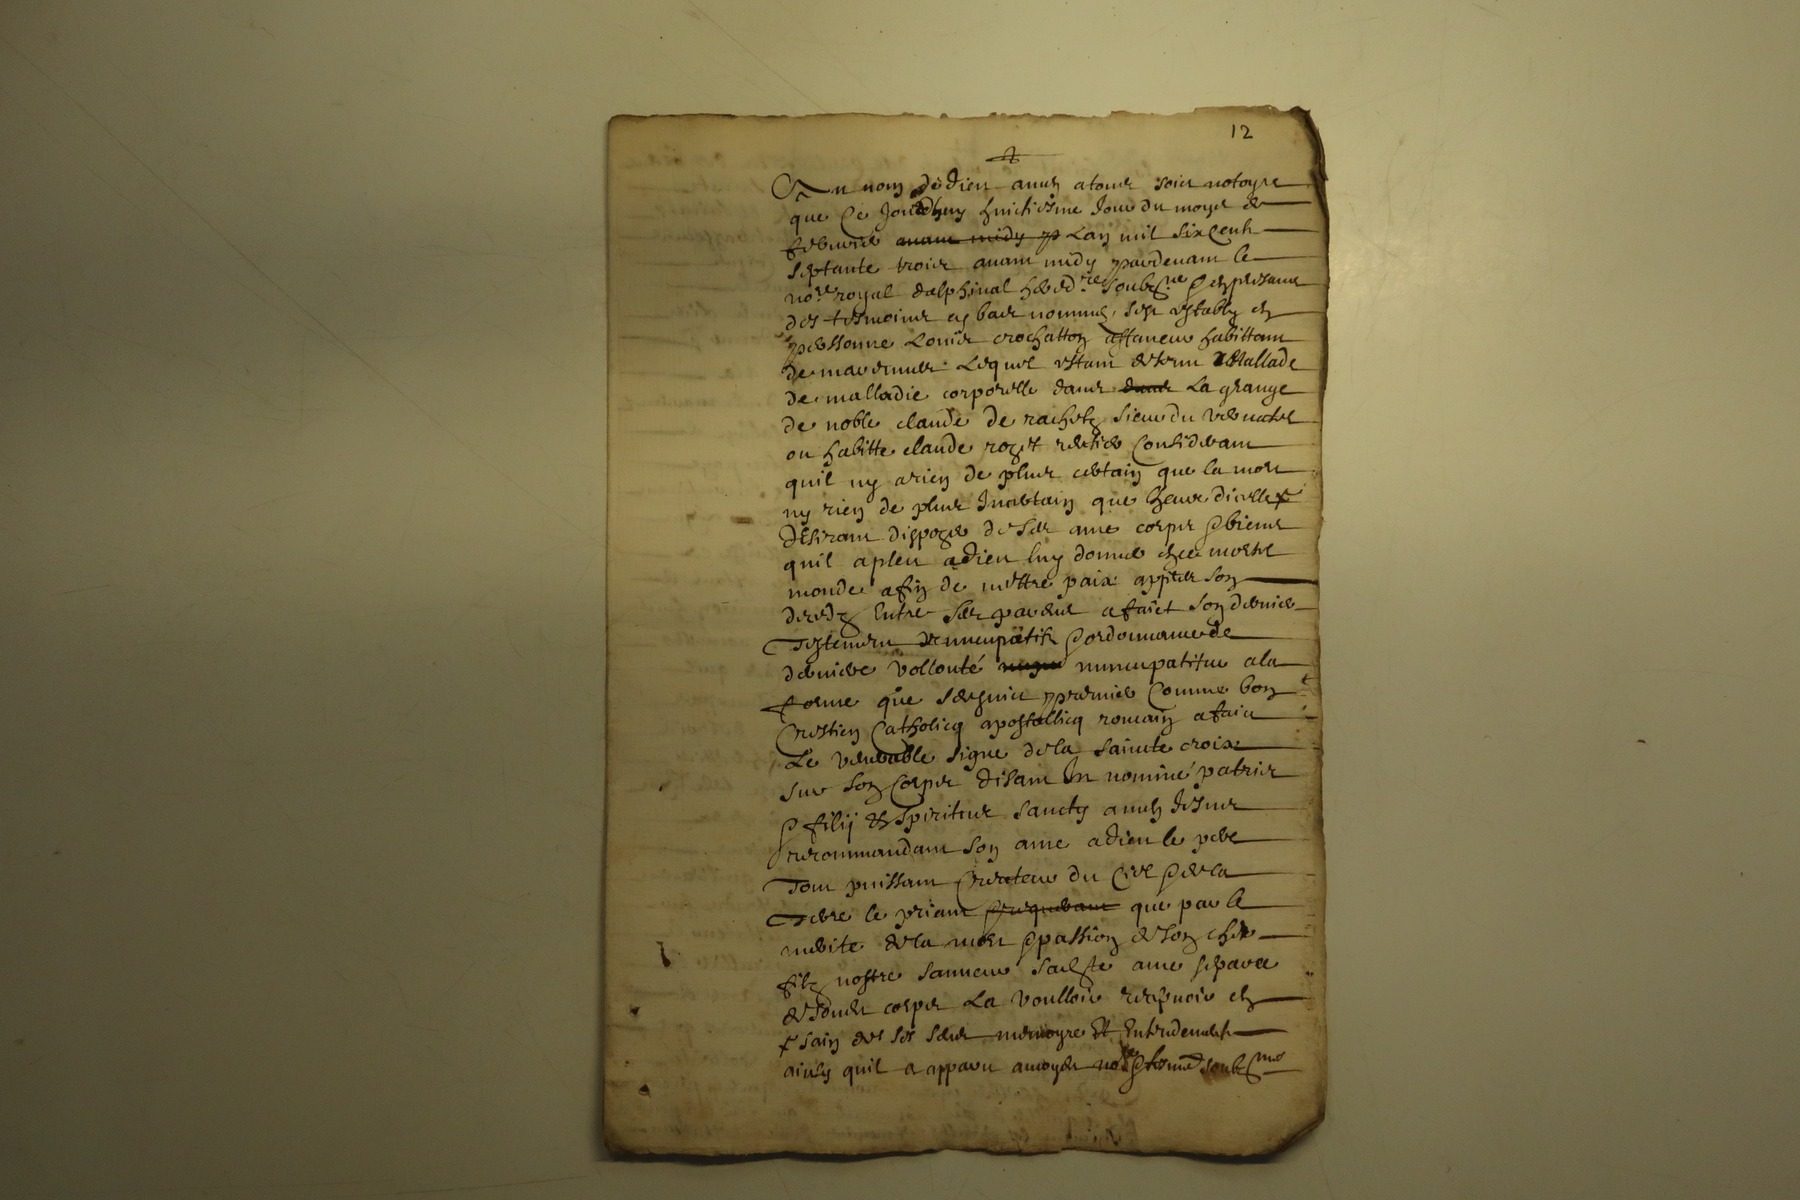 12
Au nom de dieu amen atous soict notoyre
que Ce Jourdhuy huictiesme Jour du moys de
febvrier avant midy Lan mil six Centz
septante trois avant midy pardevant le
nore royal dalphinal hered.re soubsne & en presance
des tesmoins cy bas nommes, sest estably en
personne Louis crochatton affaneur habittant
de Lequel estant detenu Mallade
de malladie corporelle dans dans La grange
de noble claude de rachetz sieur du
ou habitte claude roget considerant
quil ny arien de plus certain que la mort
ny rien de plus Incertain que lheure dicelle &
desirant dispoger de ses ame corps & biens
quil apleu adieu luy donner en ce mortel
monde afin de mettre paix appres son
deredz Entre ses parens afaict son dernier
Testement nuncupatif & ordonnance de
derniere vollonté nuncupatifve ala
forme que sensuict premier Comme bon
Crestien Catholicq apostollicq romain afaict
Le venerable signe dela saincte croix
sur son Corps disant In nominé patris
& filÿ & spiritus sancty amen Jesus
recommandant son ame adieu le pere
Tout puissant Createur du Ciel & dela
Terre le priant que par le
merite dela mort & passion de son cher
filz nostre sauveur sadste ame separee
de sondt corps La voulloir recepvoir en
sain des ses sens memoyre Et Entendement
ainsy quil a apparu amoydt nore & tesmd soubsnes